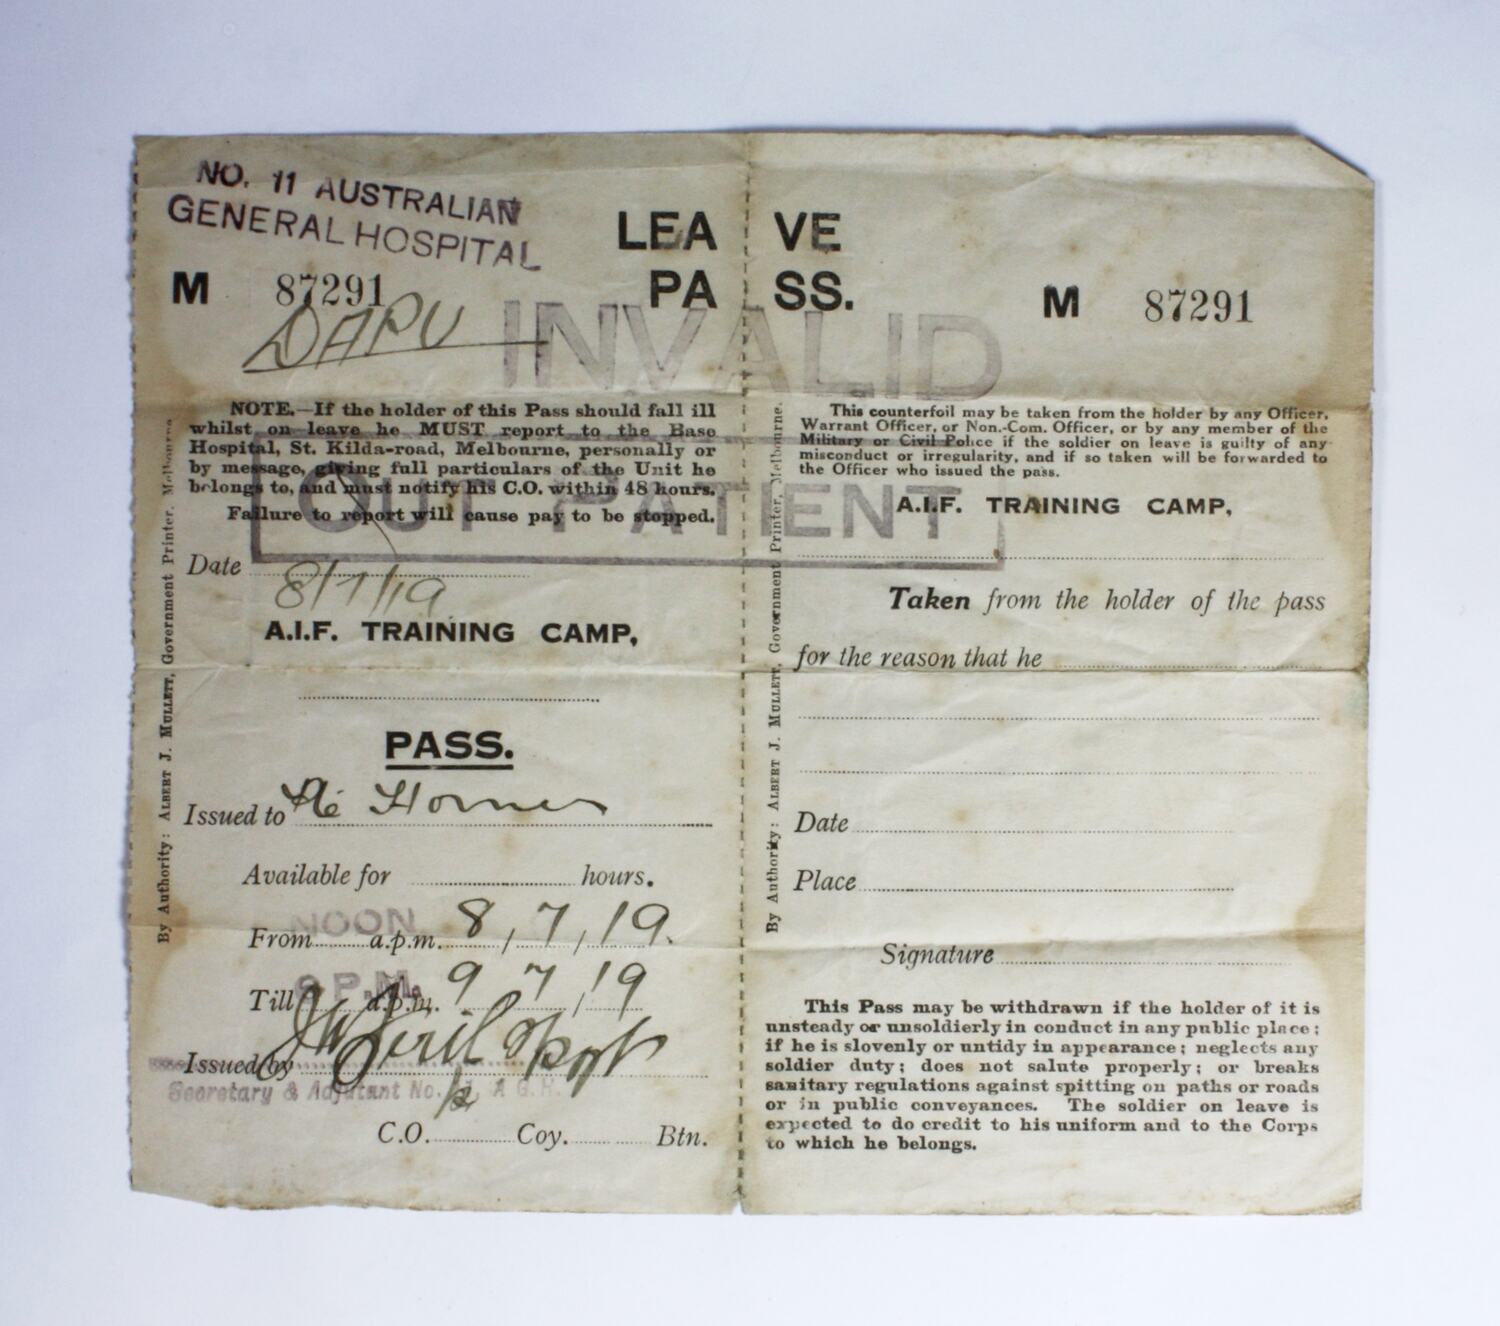 NO. 11 AUSTRALIAN
GENERAL HOSPITAL
LEAVE
PASS.
M 87291
M 87291
INVALID
OUT PATIENT
NOTE.—If the holder of this Pass should fall ill
whilst on leave he MUST report to the Base
Hospital, St. Kilda-road, Melbourne, personally or
by message, giving full particulars of the Unit he
belongs to, and must notify his C.O. within 48 hours.
Failure to report will cause pay to be stopped.
Date 8/7/19
A.I.F. TRAINING CAMP,
PASS.
Issued to Horner
Available for hours.
NOON
From a.p.m. 8, 7, 19.
P.M.
Till a.p.m. 9 7/19
Issued by
Secretary & Adjutant No. 11 A G.H.
C.O. Coy. Btn.
By Authority: ALBERT J. MULLETT, Government Printer, Melbourne.
This counterfoil may be taken from the holder by any Officer,
Warrant Officer, or Non.-Com. Officer, or by any member of the
Military or Civil Police if the soldier on leave is guilty of any
misconduct or irregularity, and if so taken will be forwarded to
the Officer who issued the pass.
A.I.F. TRAINING CAMP,
Taken from the holder of the pass
for the reason that he
Date
Place
Signature
This Pass may be withdrawn if the holder of it is
unsteady or unsoldierly in conduct in any public place;
if he is slovenly or untidy in appearance; neglects any
soldier duty; does not salute properly; or breaks
sanitary regulations against spitting on paths or roads
or in public conveyances. The soldier on leave is
expected to do credit to his uniform and to the Corps
to which he belongs.
By Authority: ALBERT J. MULLETT, Government Printer, Melbourne.